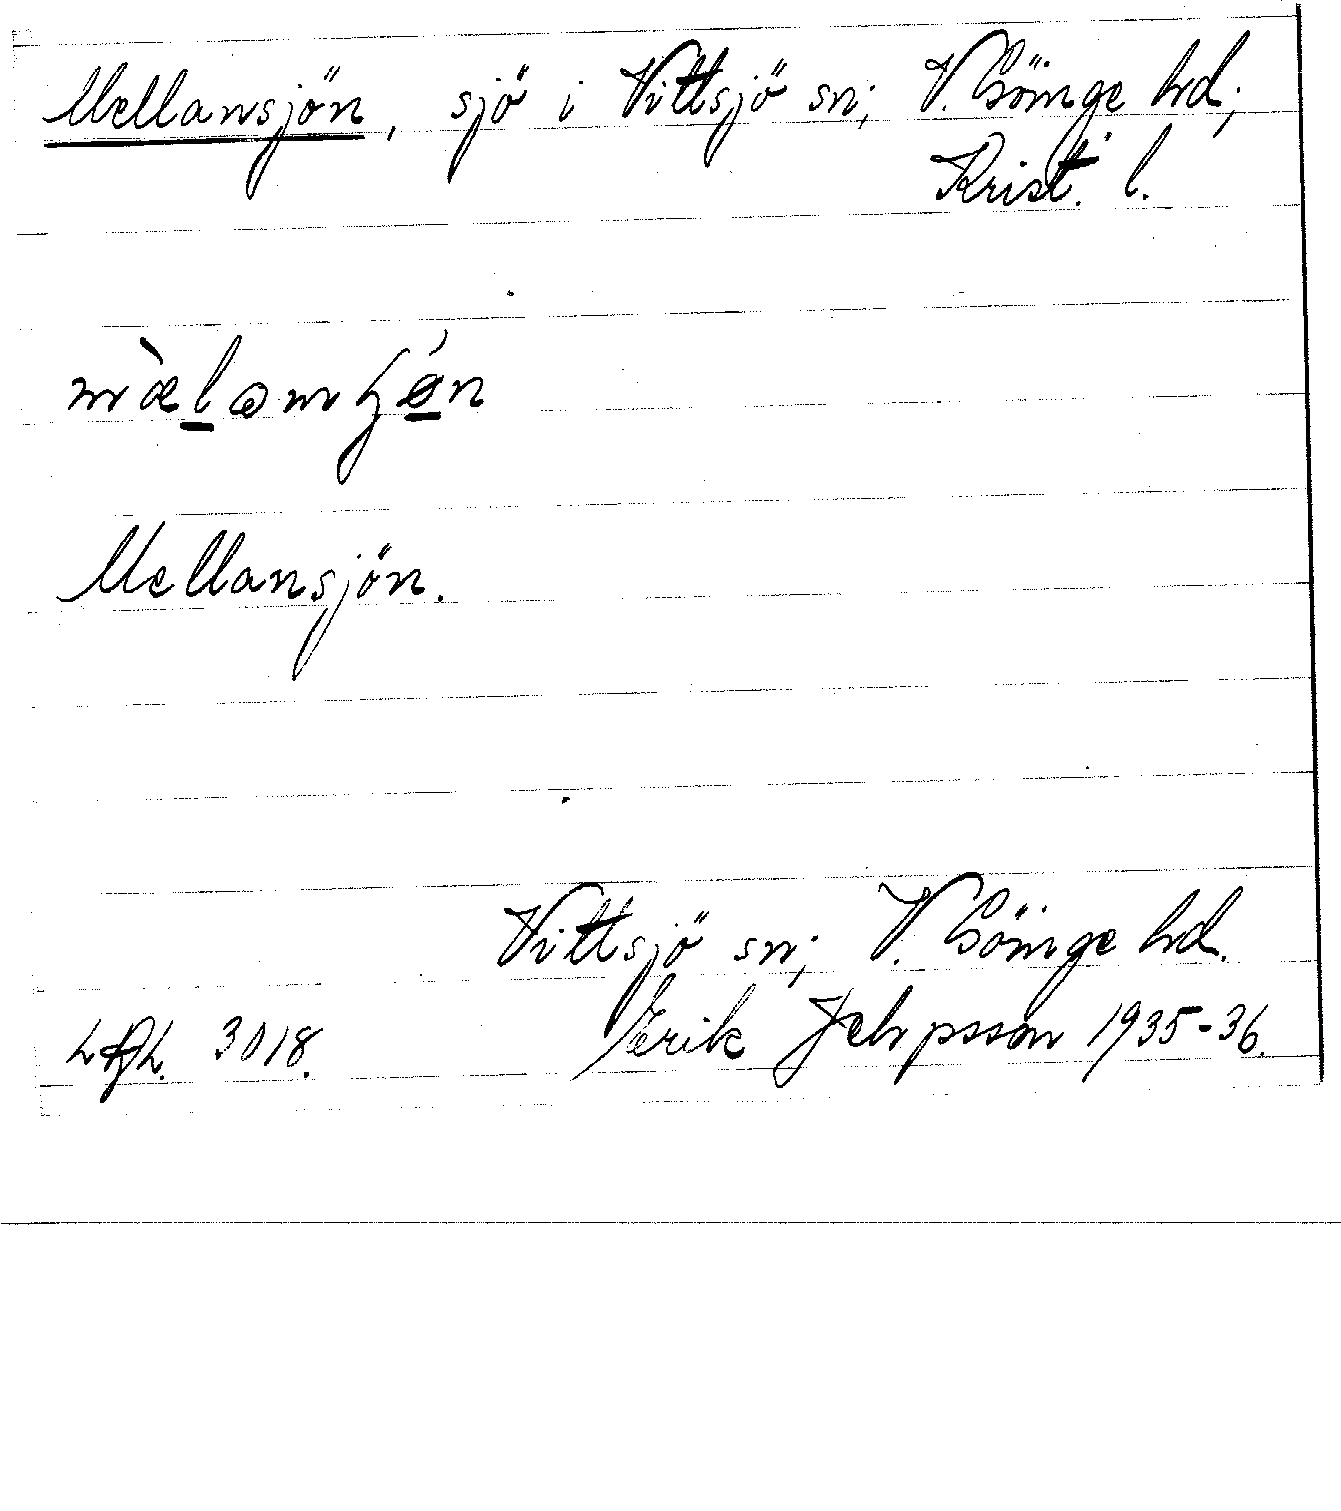 Mellansjön, sjö i Vittsjö sn; V. Göinge hd;
Krist. l.
Mellansjön.
Vittsjö sn; V. Göinge hd.
3018. Erik 1935-36.